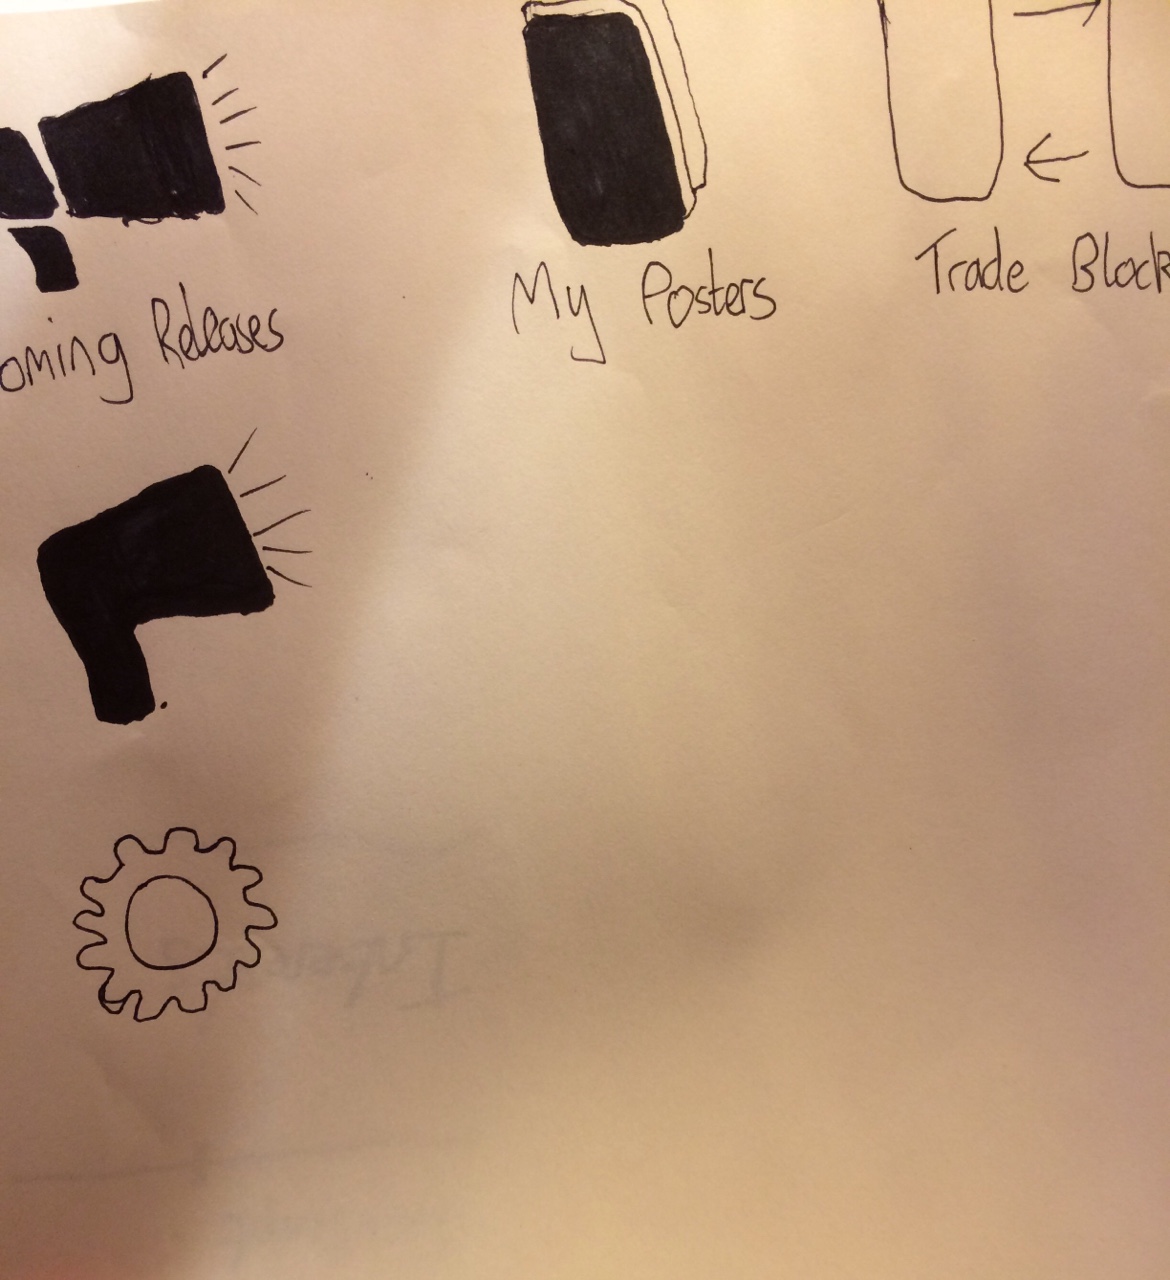 oming Releases
My Posters
Trade Block